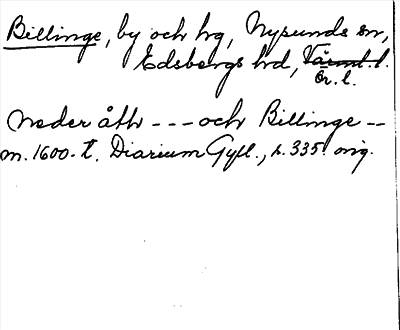 Billinge, by och hg, Nysunds sn,
Edsbergs hd, Värml. l.
Ör. l.
Neder åth --- och Billinge --
m. 1600-t. Diarium Gyll., s. 335. orig.